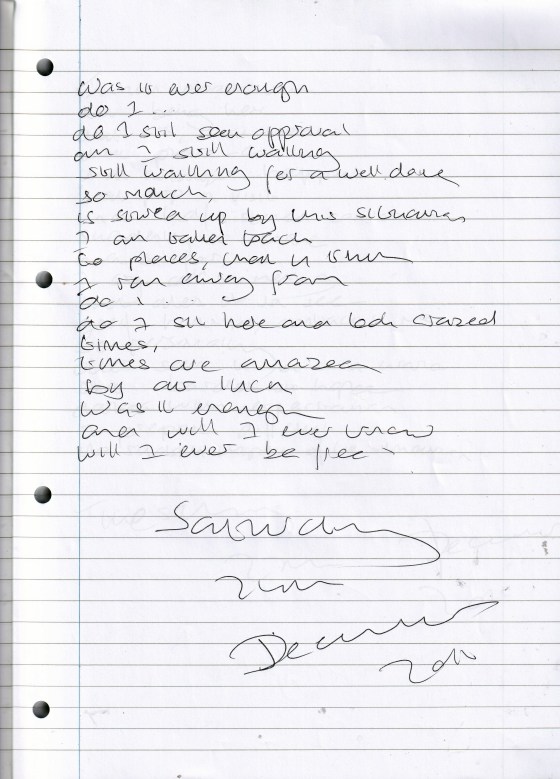 Was it ever enough
do I ..
do I still seek approval
am I still waiting
still waiting for a well done
so much,
is stirred up by this
I am taken back
to places, that I
I ran away from
do i ....
do I sit here and look crazed
times,
times are amazed
by our luck
Was it enough
and will I ever know
will I ever be free
Saturday
December